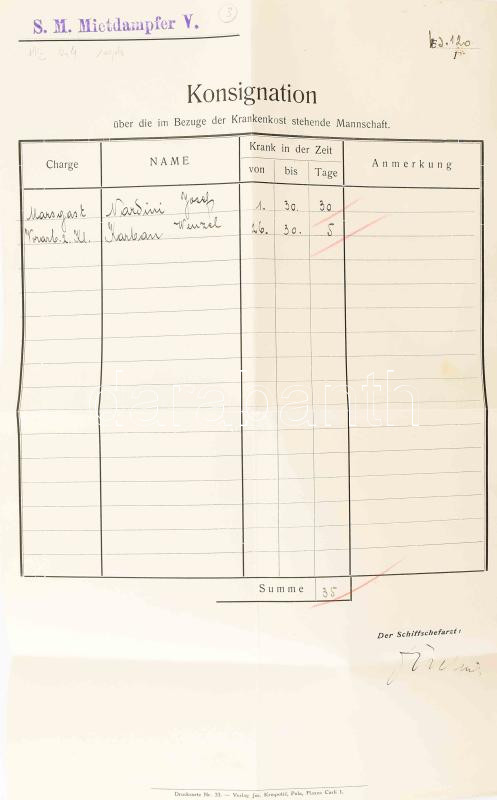 S. M. Mietdampfer V.
3
Konsignation
über die im Bezuge der Krankenkost stehende Mannschaft.
Charge NAME Krank in der Zeit Anmerkung
von bis Tage
Marsgast Nardini Josef 1. 30. 30
Vorarb. 2. Kl. Karban Wenzel 26. 30. 5
darabanth
Summe 35
Der Schiffschefarzt:
Drucksorte Nr. 33. — Verlag Jos. Krmpotić, Pola, Piazza Carli 1.